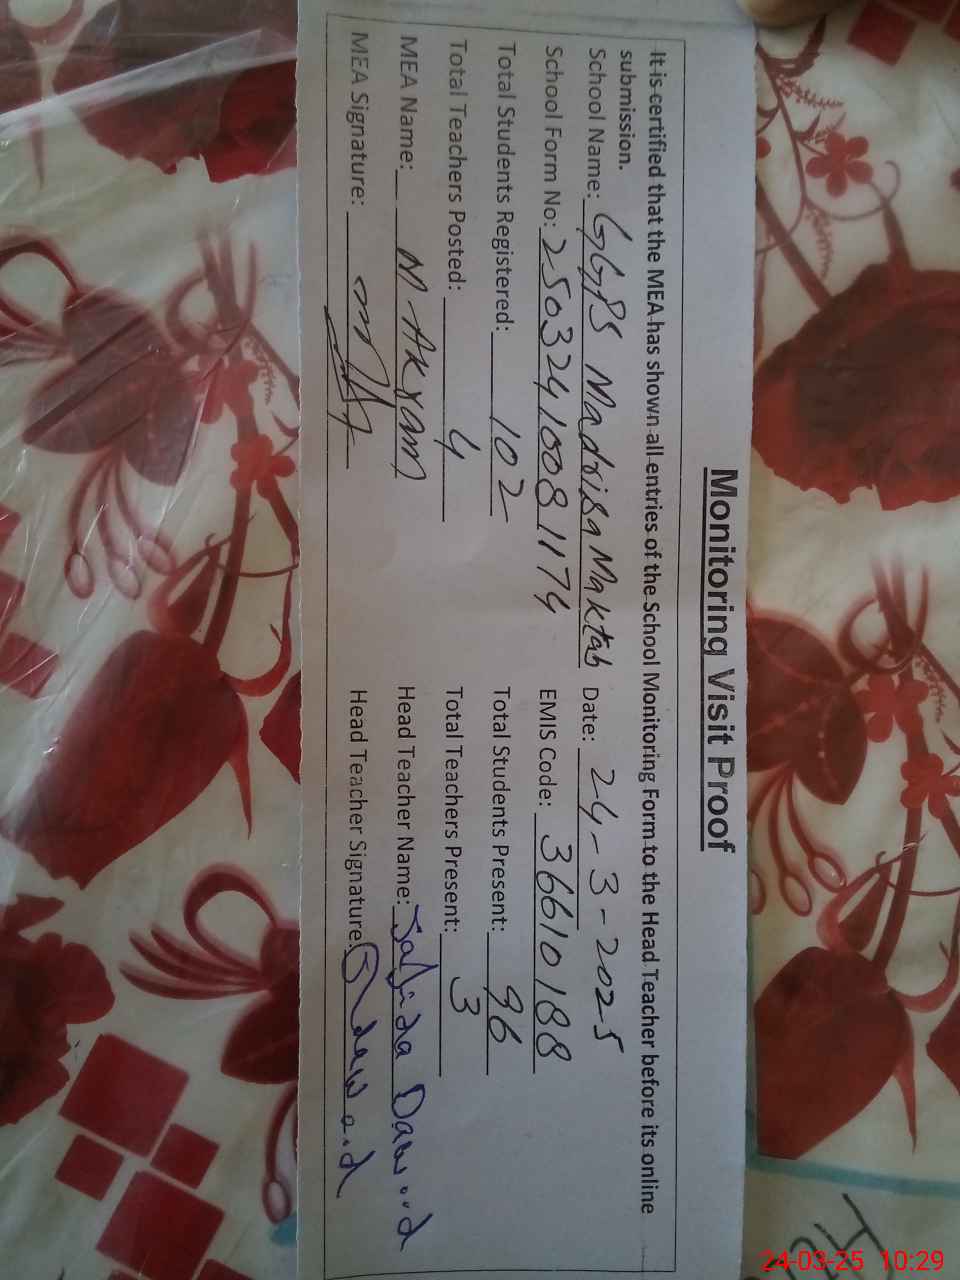 Monitoring Visit Proof
It is certified that the MEA has shown all entries of the School Monitoring Form to the Head Teacher before its online
submission.
School Name: GGPS Madrisa Maktab Date: 24-3-2025
School Form No: 25032410081174 EMIS Code: 36610188
Total Students Registered: 102 Total Students Present: 96
Total Teachers Posted: 4 Total Teachers Present: 3
MEA Name: M Akram Head Teacher Name: Dawood
MEA Signature: Head Teacher Signature:
24-03-25 10:29